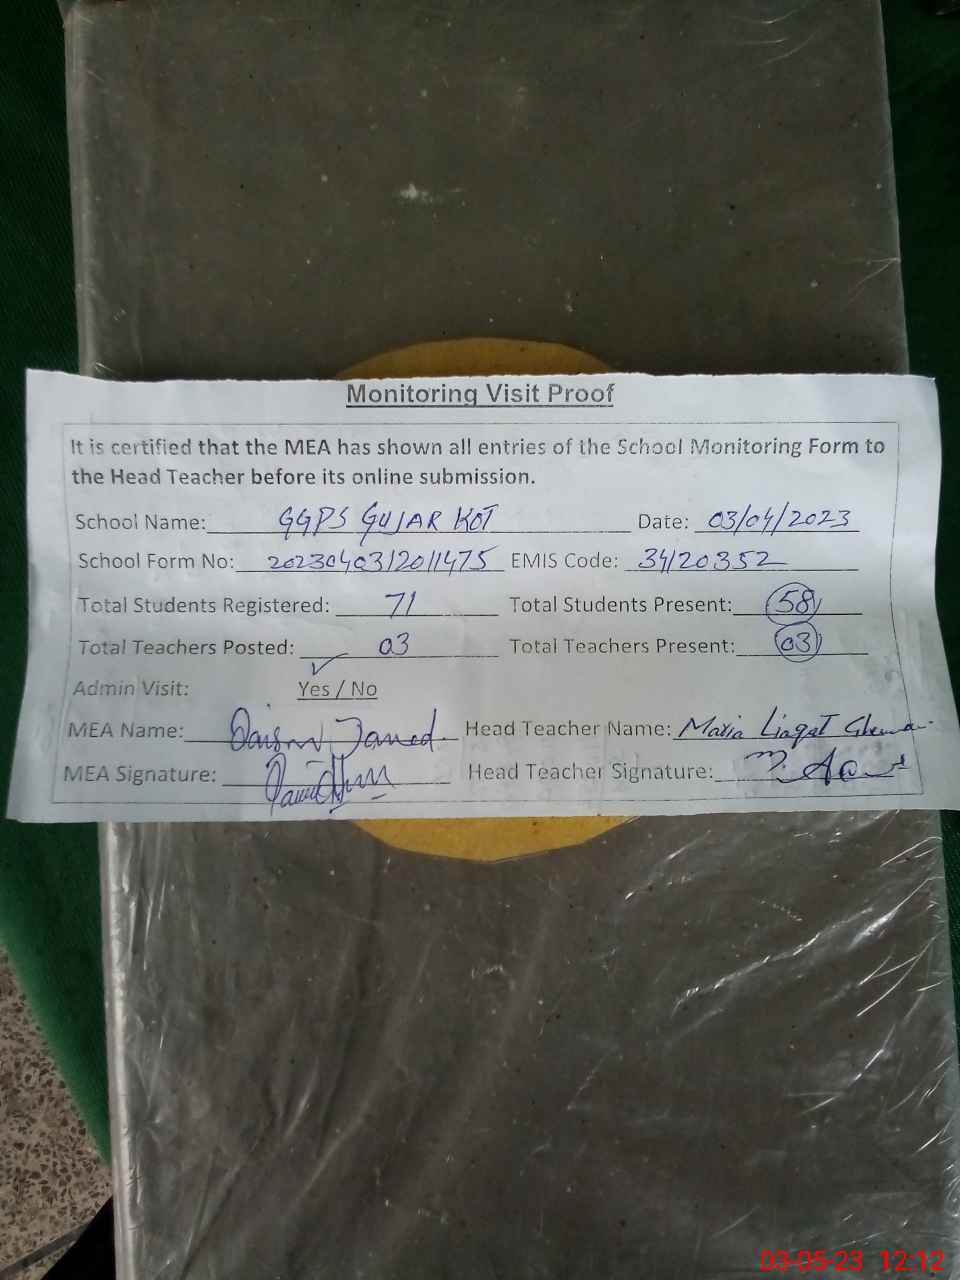 Monitoring Visit Proof
It is certified that the MEA has shown all entries of the School Monitoring Form to
the Head Teacher before its online submission.
School Name: GGPS GUJAR KOT Date: 03/04/2023
School Form No: 2023040312011475 EMIS Code: 34120352
Total Students Registered: 71 Total Students Present: 58
Total Teachers Posted: 03 Total Teachers Present: 03
Admin Visit: Yes / No
MEA Name: Head Teacher Name: Maria Liaqat
MEA Signature: Head Teacher Signature:
03-05-23 12:12